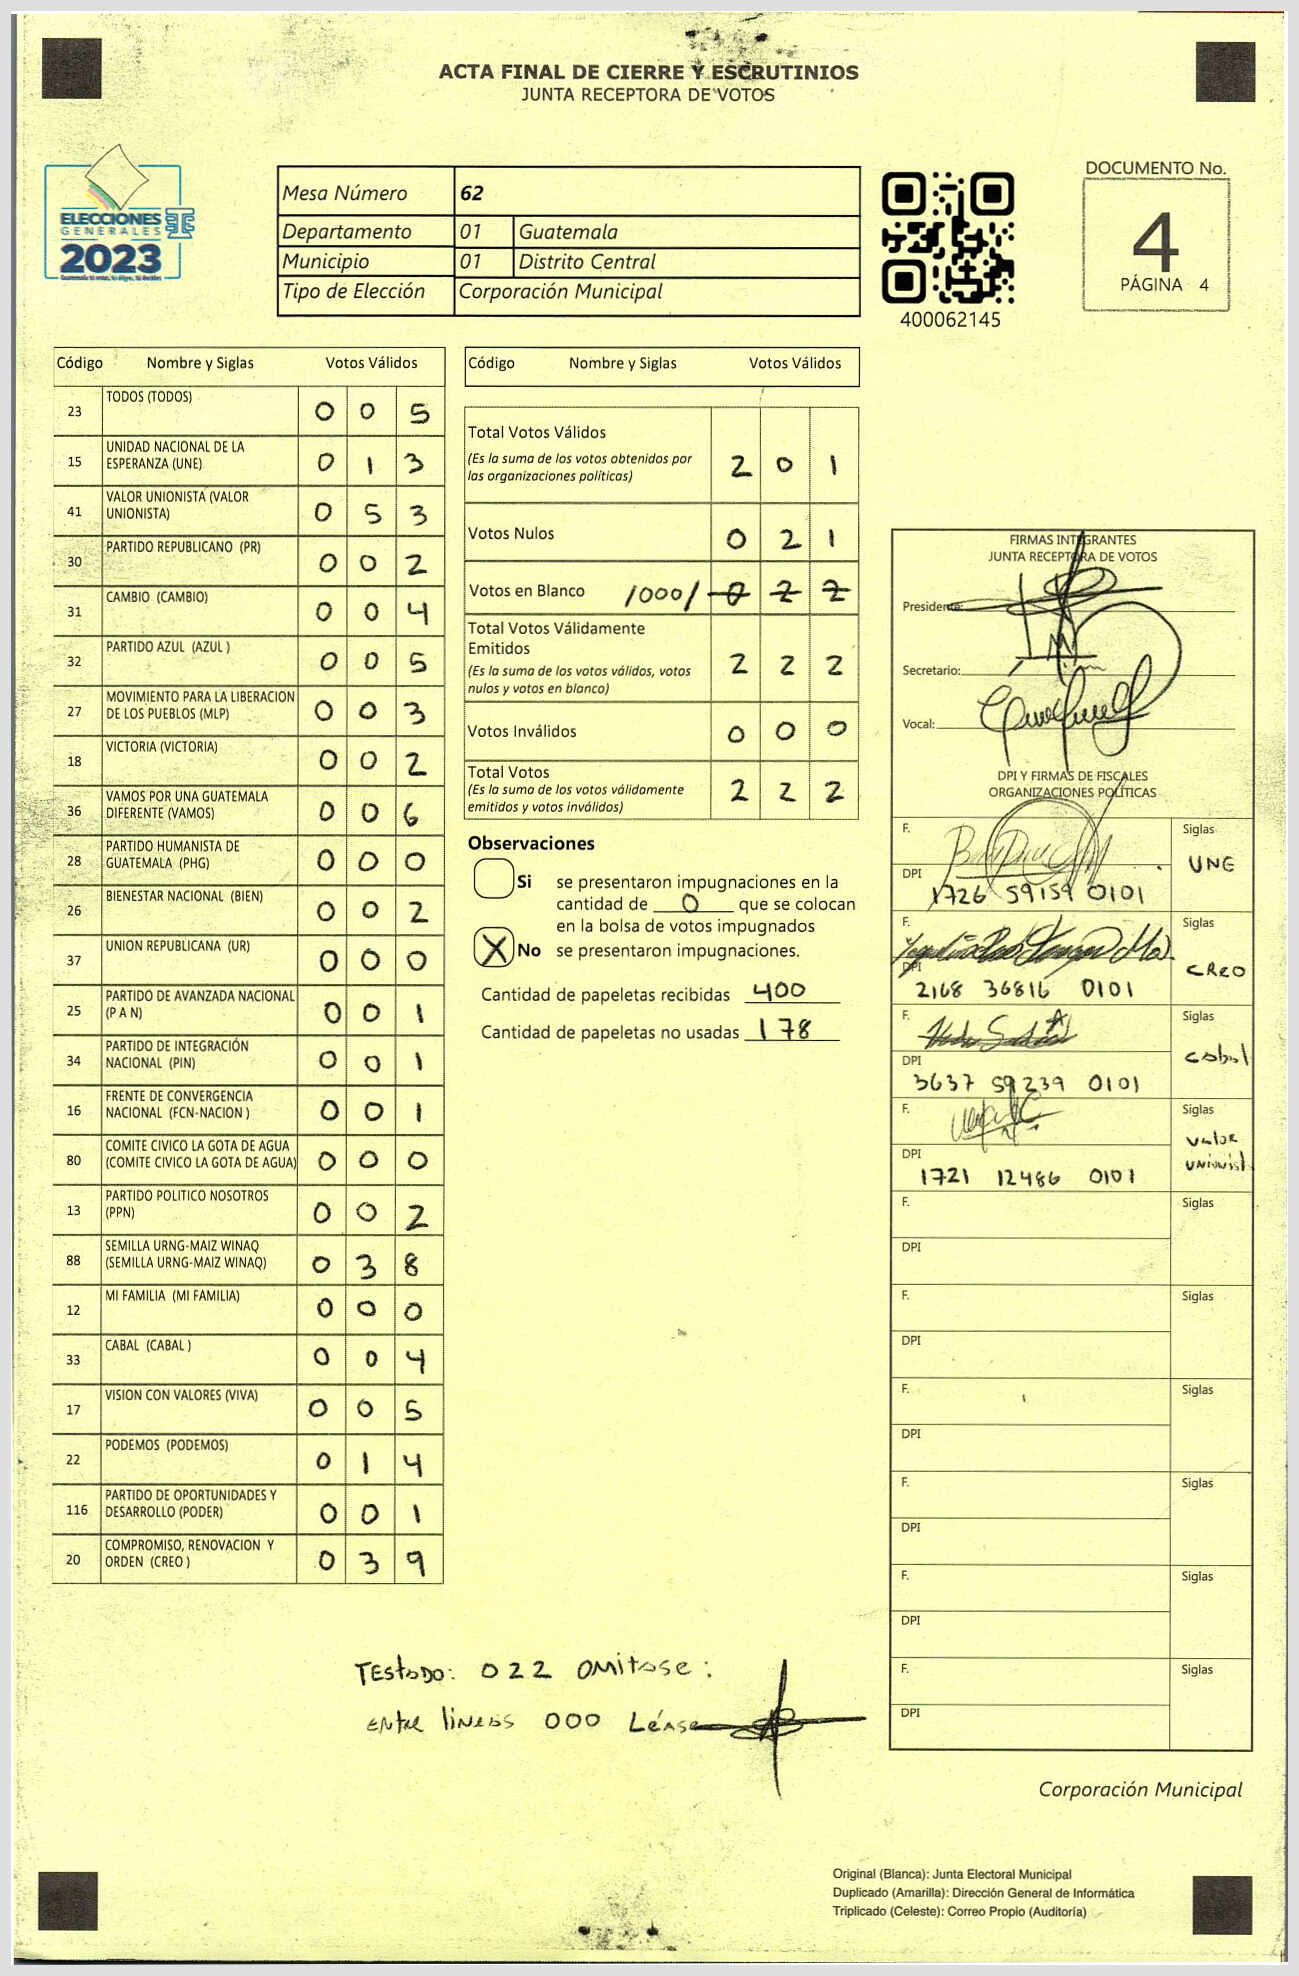 ACTA FINAL DE CIERRE Y ESCRUTINIOS
JUNTA RECEPTORA DE VOTOS
ELECCIONES
GENERALES
2023
Mesa Número 62
Departamento 01 Guatemala
Municipio 01 Distrito Central
Tipo de Elección Corporación Municipal
400062145
DOCUMENTO No.
4
PÁGINA 4
Código Nombre y Siglas Votos Válidos
23 TODOS (TODOS) 0 0 5
15 UNIDAD NACIONAL DE LA
ESPERANZA (UNE) 0 1 3
41 VALOR UNIONISTA (VALOR
UNIONISTA) 0 5 3
30 PARTIDO REPUBLICANO (PR) 0 0 2
31 CAMBIO (CAMBIO) 0 0 4
32 PARTIDO AZUL (AZUL ) 0 0 5
27 MOVIMIENTO PARA LA LIBERACION
DE LOS PUEBLOS (MLP) 0 0 3
18 VICTORIA (VICTORIA) 0 0 2
36 VAMOS POR UNA GUATEMALA
DIFERENTE (VAMOS) 0 0 6
28 PARTIDO HUMANISTA DE
GUATEMALA (PHG) 0 0 0
26 BIENESTAR NACIONAL (BIEN) 0 0 2
37 UNION REPUBLICANA (UR) 0 0 0
25 PARTIDO DE AVANZADA NACIONAL
(P A N) 0 0 1
34 PARTIDO DE INTEGRACIÓN
NACIONAL (PIN) 0 0 1
16 FRENTE DE CONVERGENCIA
NACIONAL (FCN-NACION ) 0 0 1
80 COMITE CIVICO LA GOTA DE AGUA
(COMITE CIVICO LA GOTA DE AGUA) 0 0 0
13 PARTIDO POLITICO NOSOTROS
(PPN) 0 0 2
88 SEMILLA URNG-MAIZ WINAQ
(SEMILLA URNG-MAIZ WINAQ) 0 3 8
12 MI FAMILIA (MI FAMILIA) 0 0 0
33 CABAL (CABAL ) 0 0 4
17 VISION CON VALORES (VIVA) 0 0 5
22 PODEMOS (PODEMOS) 0 1 4
116 PARTIDO DE OPORTUNIDADES Y
DESARROLLO (PODER) 0 0 1
20 COMPROMISO, RENOVACION Y
ORDEN (CREO ) 0 3 9
Código Nombre y Siglas Votos Válidos
Total Votos Válidos
(Es la suma de los votos obtenidos por
las organizaciones políticas) 2 0 1
Votos Nulos 0 2 1
Votos en Blanco /000/ 0 2 2
Total Votos Válidamente
Emitidos
(Es la suma de los votos válidos, votos
nulos y votos en blanco) 2 2 2
Votos Inválidos 0 0 0
Total Votos
(Es la suma de los votos válidamente
emitidos y votos inválidos) 2 2 2
Observaciones
Si se presentaron impugnaciones en la
cantidad de 0 que se colocan
en la bolsa de votos impugnados
X No se presentaron impugnaciones.
Cantidad de papeletas recibidas 400
Cantidad de papeletas no usadas 178
FIRMAS INTEGRANTES
JUNTA RECEPTORA DE VOTOS
Presidente:
Secretario:
Vocal:
DPI Y FIRMAS DE FISCALES
ORGANIZACIONES POLÍTICAS
F. Siglas
UNE
DPI
1726 59159 0101
F. Siglas
CREO
DPI
2168 36816 0101
F. Siglas
Cabal
DPI
3637 59239 0101
F. Siglas
Valor
DPI
1721 12486 0101
F. Siglas
DPI
F. Siglas
DPI
F. Siglas
DPI
F. Siglas
DPI
F. Siglas
DPI
F. Siglas
DPI
Testado: 022 omitase:
Entre lineas 000 Léase
Corporación Municipal
Original (Blanca): Junta Electoral Municipal
Duplicado (Amarilla): Dirección General de Informática
Triplicado (Celeste): Correo Propio (Auditoría)